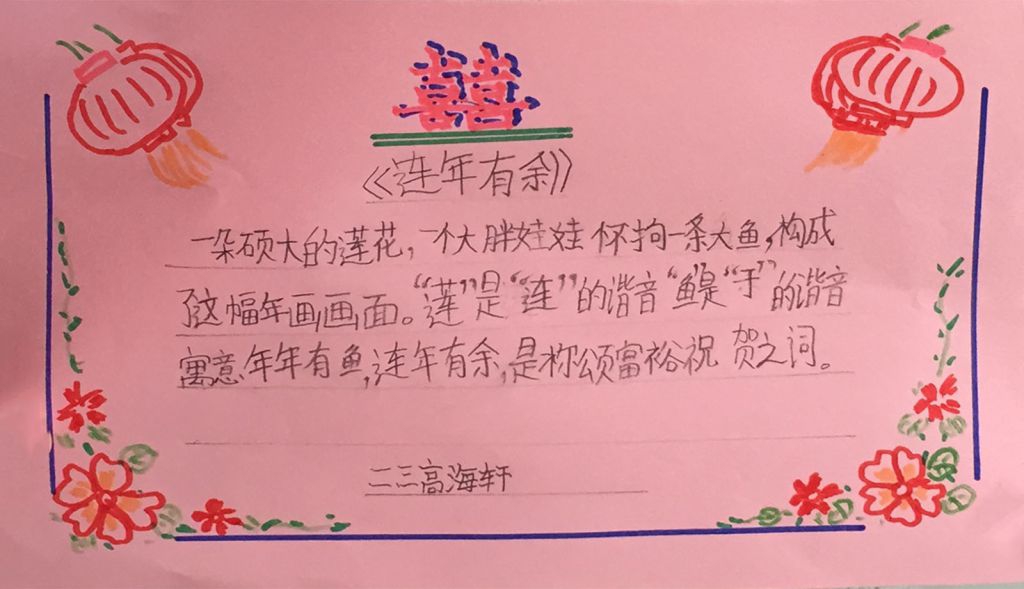 囍
《连年有余》
一朵硕大的莲花，一个大胖娃娃怀拘一条大鱼，构成
了这幅年画画面。“莲”是“连”的谐音“鱼是“于”的谐音
寓意年年有鱼，连年有余，是称颂富裕祝贺之词。
二三高海轩